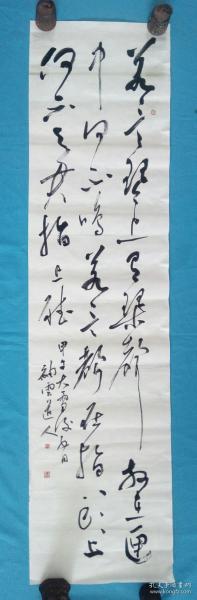 若言琴上有琴声放在匣
中何不鸣若言声在指头上
何不于君指上听
甲子大雪后五日
云道人
孔夫子旧书网